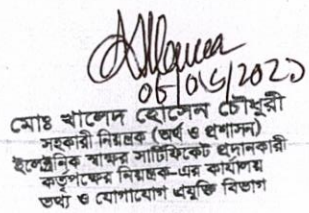 06/05/2021
মোঃ খালেদ হোসেন চৌধুরী
সহকারী নিয়ন্ত্রক (অর্থ ও প্রশাসন)
ইলেক্ট্রনিক স্বাক্ষর সার্টিফিকেট প্রদানকারী
কর্তৃপক্ষের নিয়ন্ত্রক-এর কার্যালয়
তথ্য ও যোগাযোগ প্রযুক্তি বিভাগ